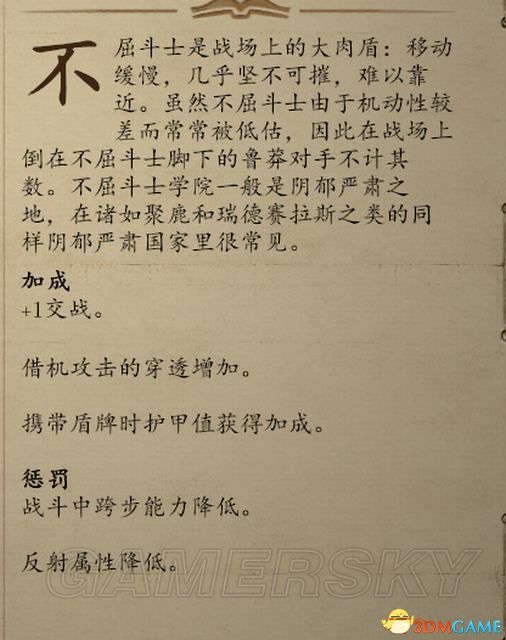 不屈斗士是战场上的大肉盾：移动
缓慢，几乎坚不可摧，难以靠
近。虽然不屈斗士由于机动性较
差而常常被低估，因此在战场上
倒在不屈斗士脚下的鲁莽对手不计其
数。不屈斗士学院一般是阴郁严肃之
地，在诸如聚鹿和瑞德赛拉斯之类的同
样阴郁严肃国家里很常见。
加成
+1交战。
借机攻击的穿透增加。
携带盾牌时护甲值获得加成。
惩罚
战斗中跨步能力降低。
反射属性降低。
GAMERSKY
3DMGAME